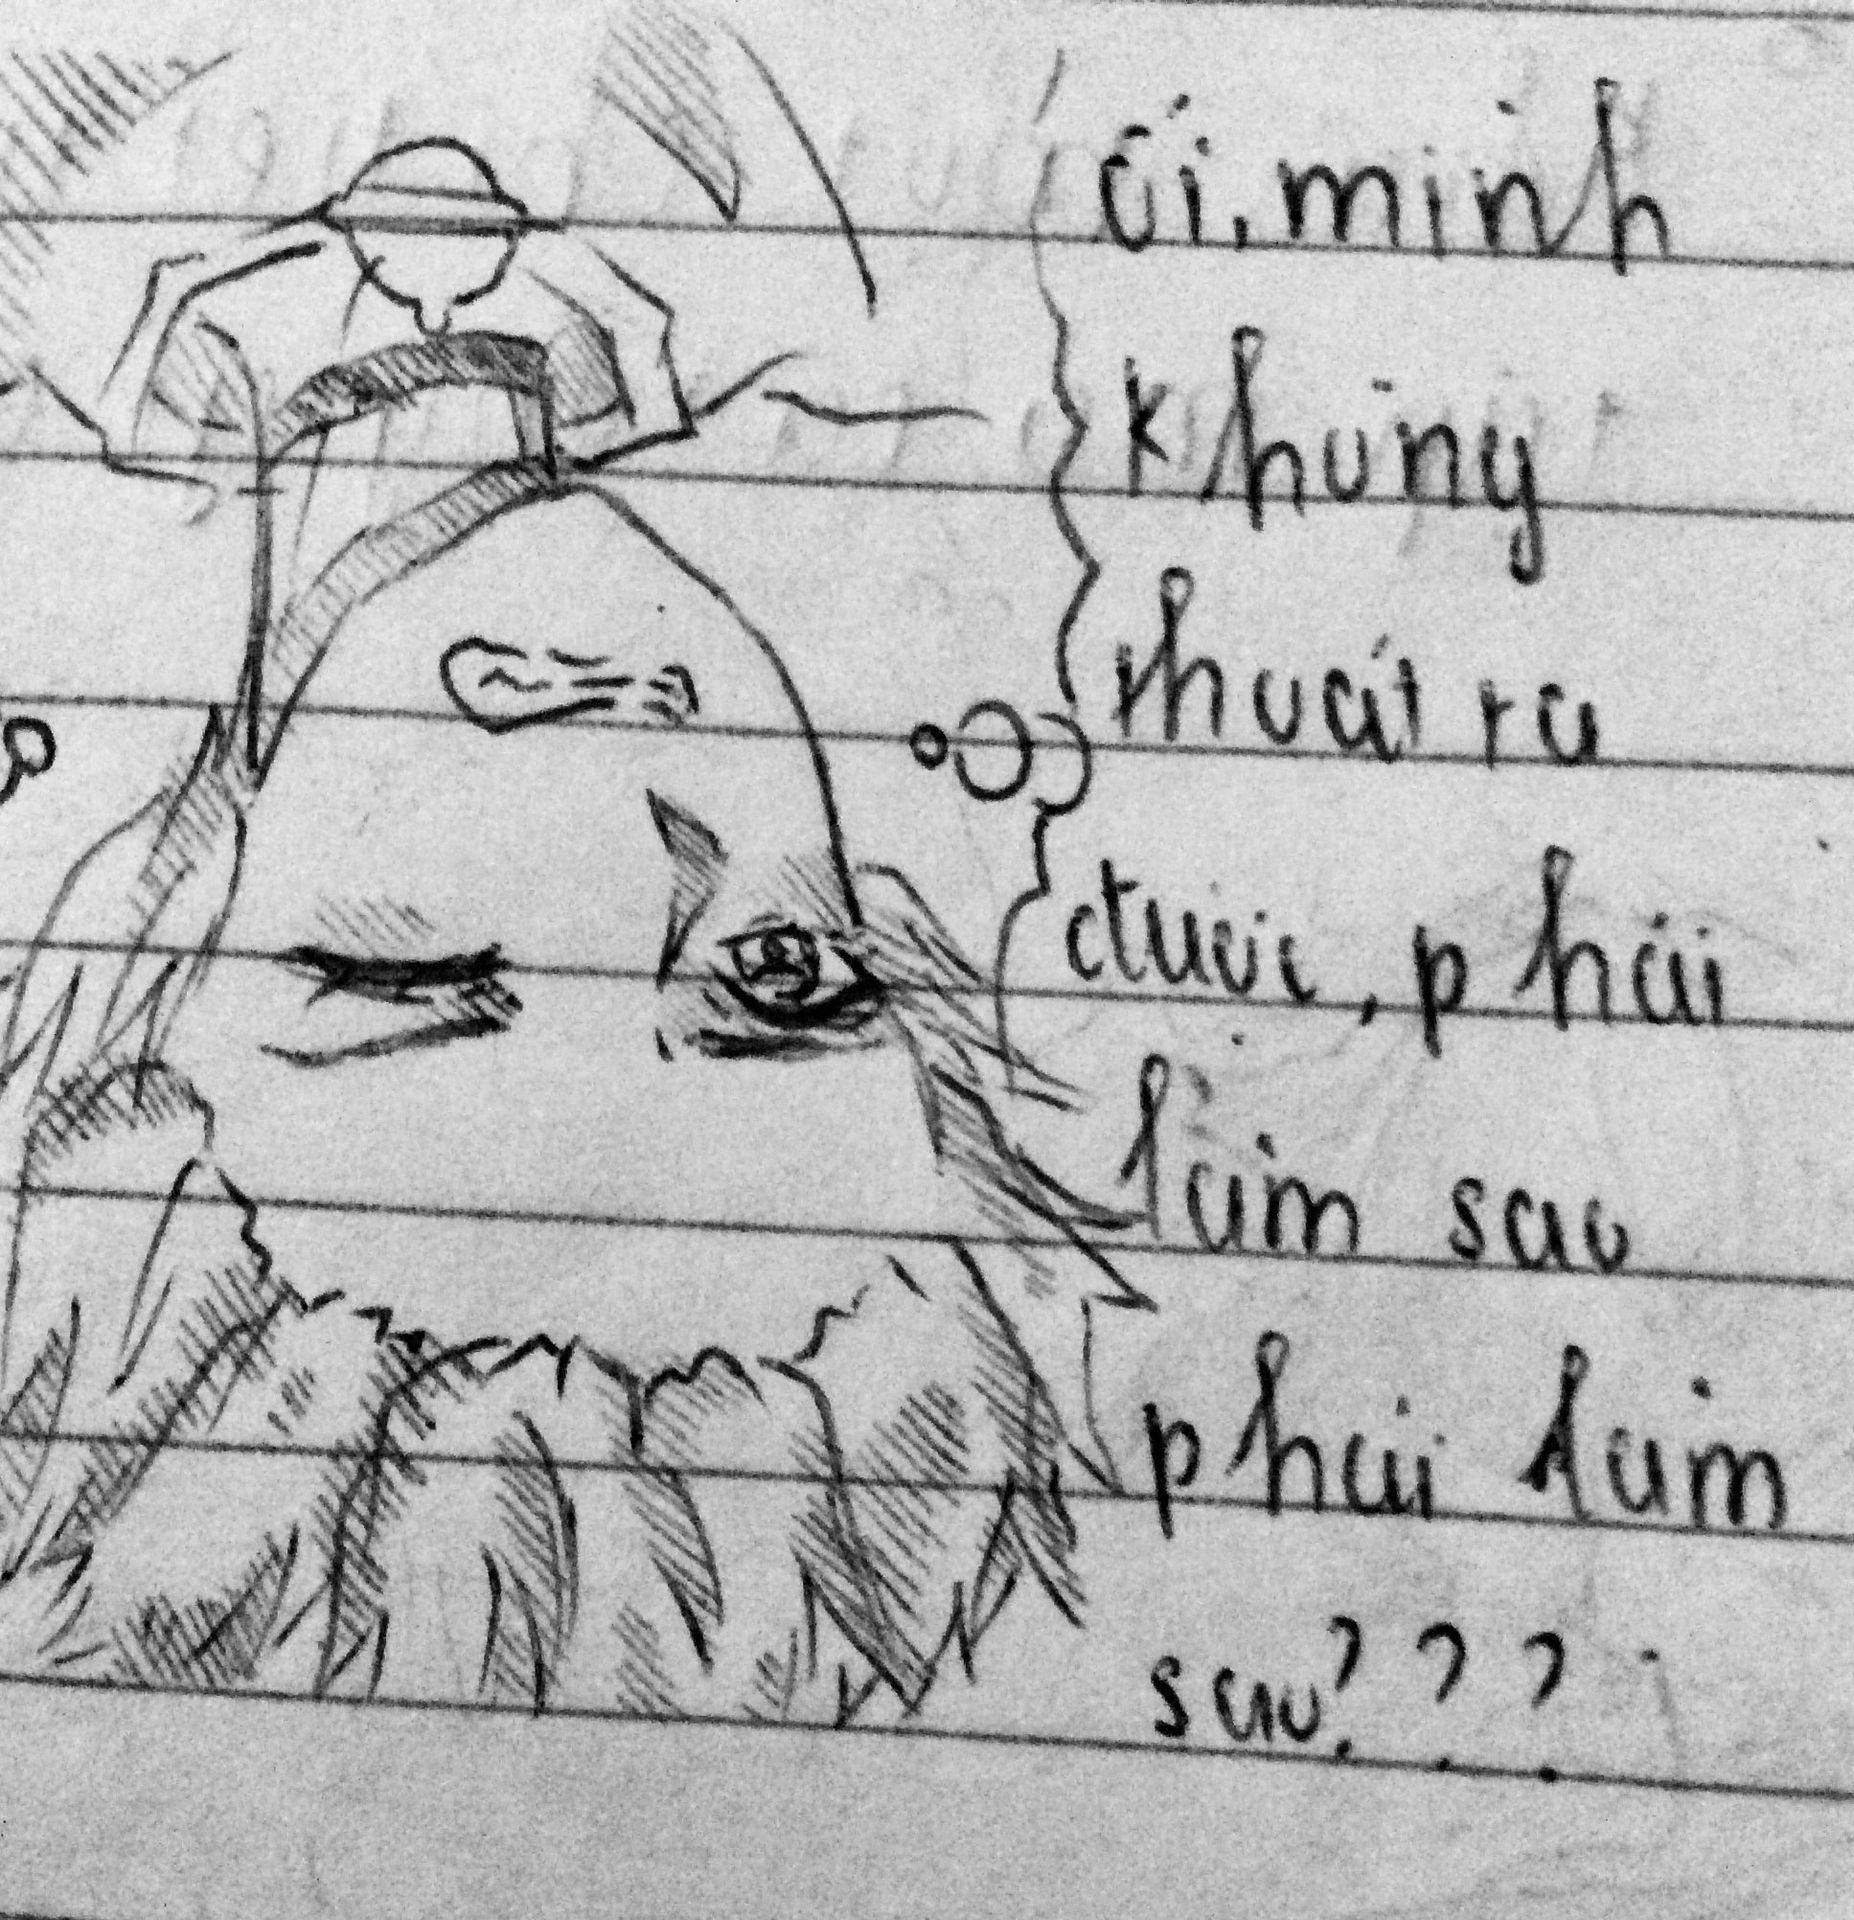 Ối, mình
không
thoát ra
được, phải
làm sao
phải làm
sao???